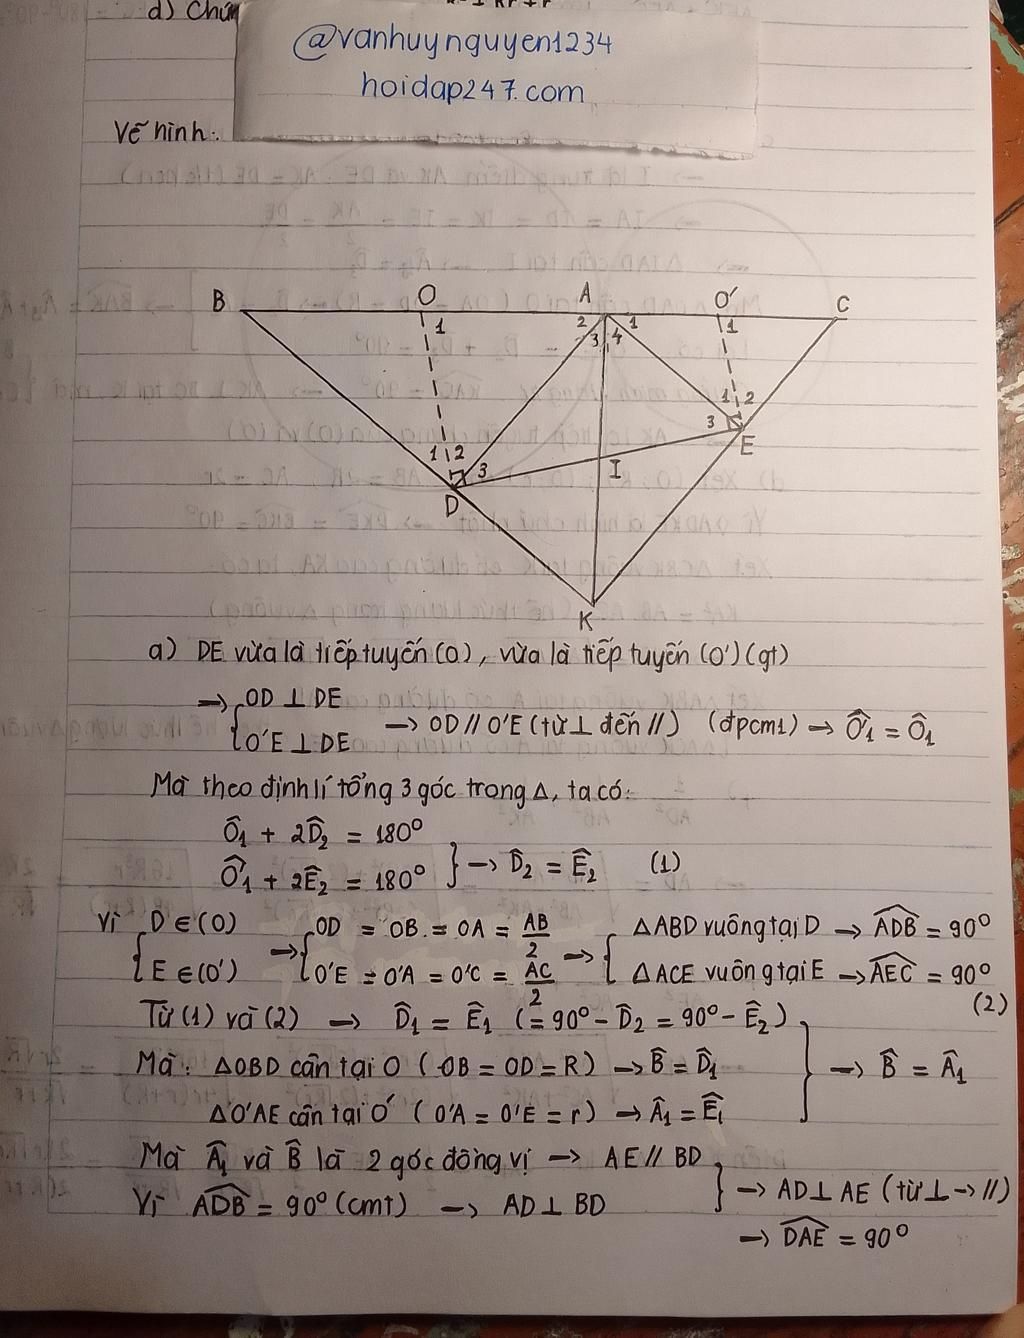 d) Chứn
@vanhuynguyen1234
hoidap247.com
Vẽ hình:
B O A O' C
1 2 3 4 1 1
1 2 3 3 1 2
D I E
K
a) DE vừa là tiếp tuyến (O), vừa là tiếp tuyến (O') (gt)
→ { OD ⊥ DE
O'E ⊥ DE → OD // O'E (từ ⊥ đến //) (đpcm1) → Ô'₁ = Ô₁
Mà theo định lí tổng 3 góc trong Δ, ta có:
Ô₁ + 2D̂₂ = 180°
Ô'₁ + 2Ê₂ = 180° } → D̂₂ = Ê₂ (1)
Vì { D ∈ (O) → { OD = OB = OA = AB/2 → { ΔABD vuông tại D → ADB̂ = 90°
E ∈ (O') O'E = O'A = O'C = AC/2 ΔACE vuông tại E → AEĈ = 90°
(2)
Từ (1) và (2) → D̂₁ = Ê₁ (= 90° - D̂₂ = 90° - Ê₂)
Mà: ΔOBD cân tại O (OB = OD = R) → B̂ = D̂₁ } → B̂ = Â₁
ΔO'AE cân tại O' (O'A = O'E = r) → Â₁ = Ê₁
Mà Â₁ và B̂ là 2 góc đồng vị → AE // BD
Vì ADB̂ = 90° (cmt) → AD ⊥ BD } → AD ⊥ AE (từ ⊥ → //)
→ DAÊ = 90°